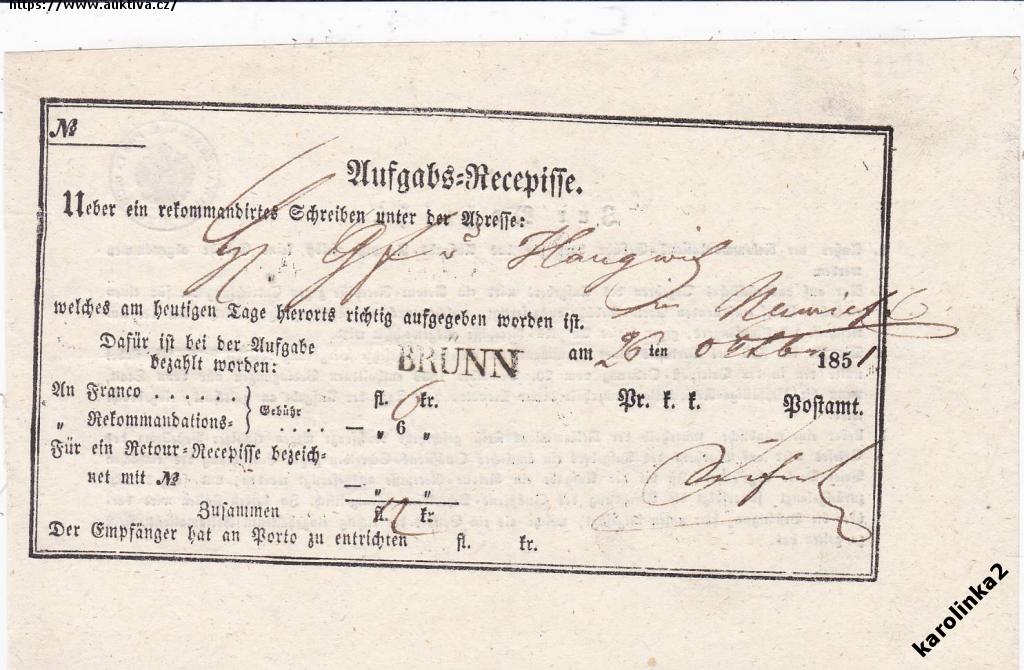 https://www.auktiva.cz/
№
Aufgabs-Recepisse.
Ueber ein rekommandirtes Schreiben unter der Adresse:
Haugwitz
in
welches am heutigen Tage hierorts richtig aufgegeben worden ist.
Dafür ist bei der Aufgabe
bezahlt worden:
BRUNN am 26ten 1851
An Franco . . . . . . fl. 6 kr. Pr. k. k. Postamt.
„ Rekommandations- Gebühr . . . . — „ 6 „
Für ein Retour-Recepisse bezeich-
net mit № „ „
Zusammen fl. 12 kr.
Der Empfänger hat an Porto zu entrichten fl. kr.
karolinka2